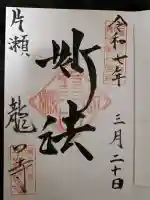 令和七年
三月二十日
妙法
片瀬
龍口寺